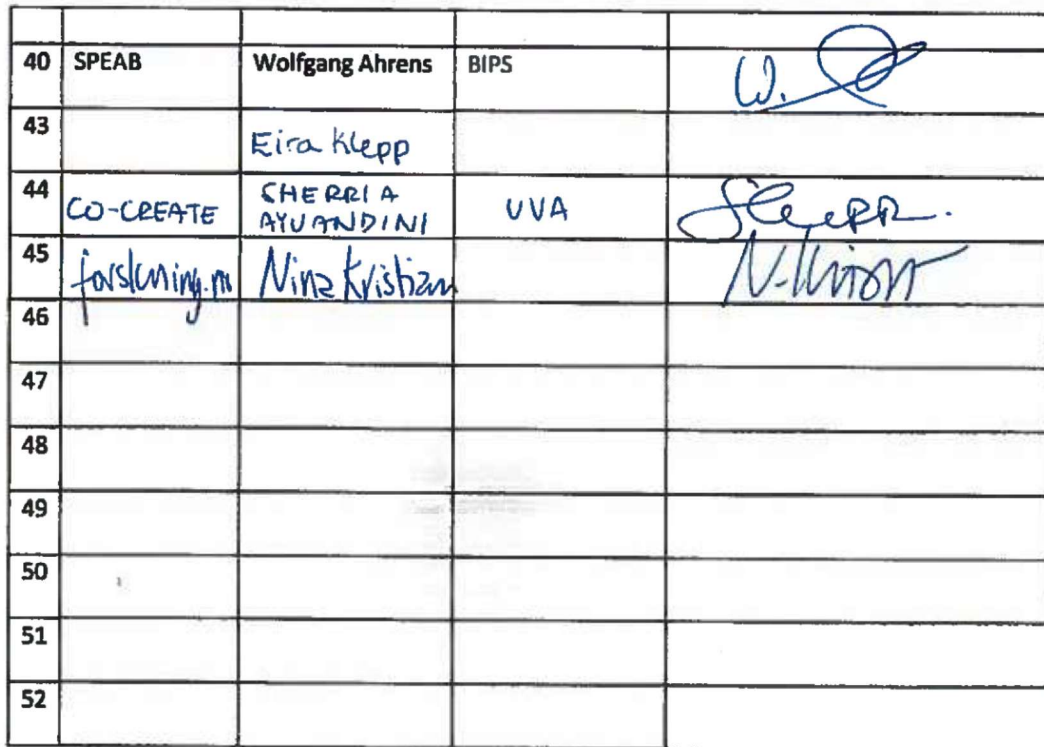 40 SPEAB Wolfgang Ahrens BIPS W.
43 Eira Klepp
44 CO-CREATE SHERRIA
AYUANDINI UVA
45 forskning.no Nina Kristian
46
47
48
49
50
51
52